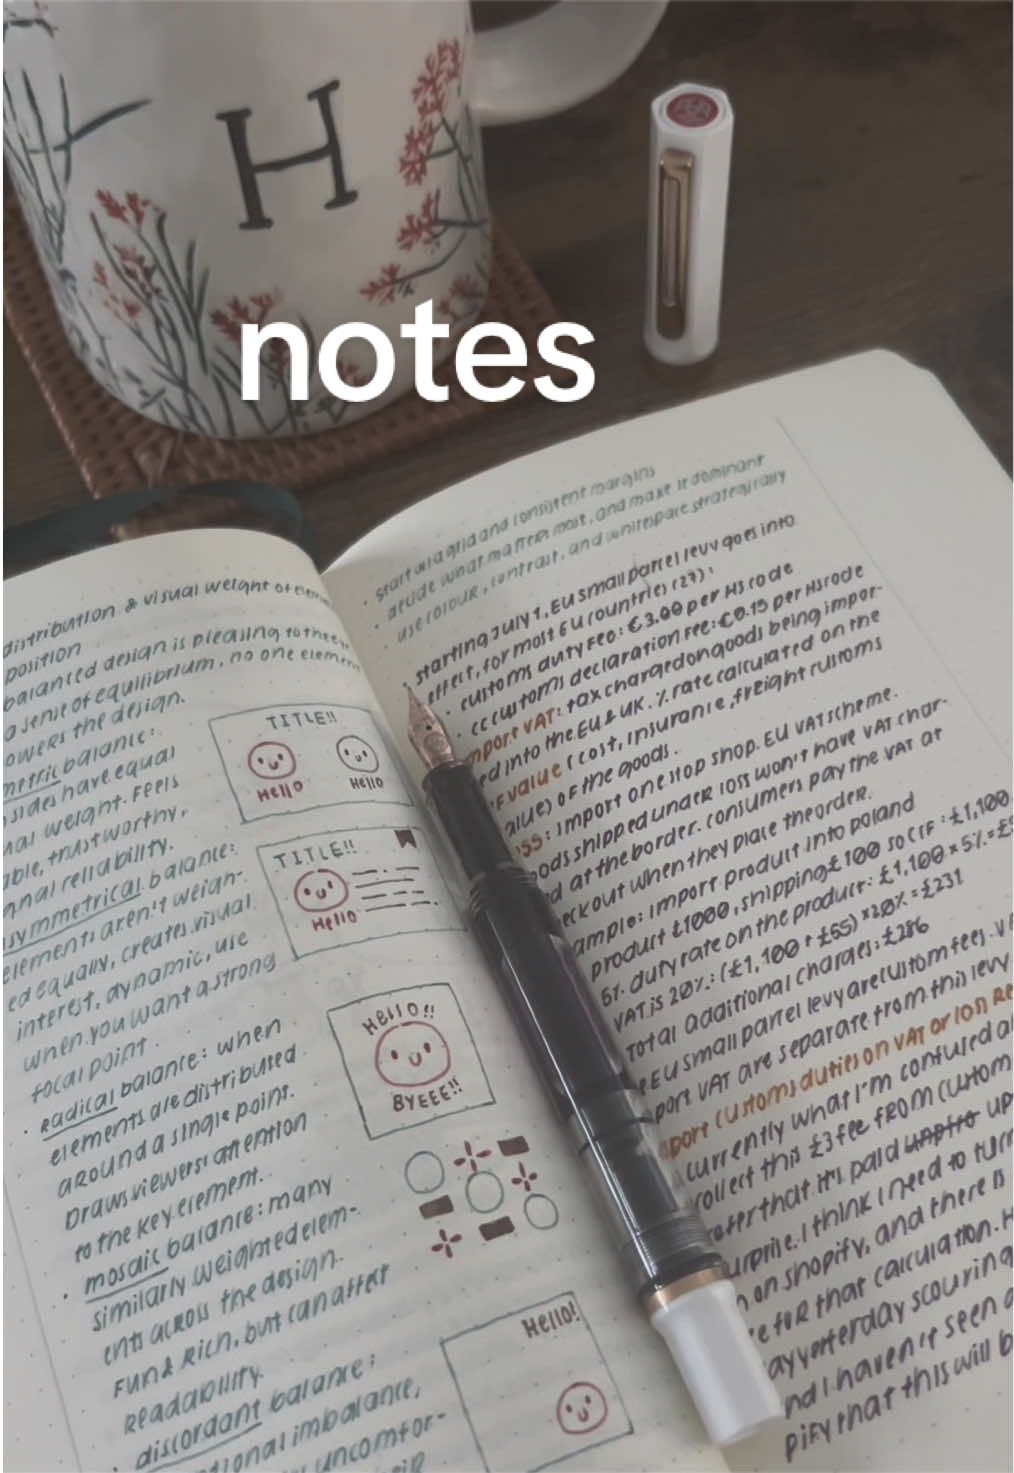 H
notes
distribution & visual weight of
position
balanced design is pleasing to the
a sense of equilibrium, no one element
owers the design.
metric balance:
sides have equal
weight. Feels
able, trustworthy,
reliability.
symmetrical balance:
elements aren't weigh-
ed equally, creates visual
interest, dynamic, use
when you want a strong
focal point.
· radical balance: when
elements are distributed
around a single point.
Draws viewers' attention
to the key element.
· mosaic balance: many
similarly weighted elem-
ents across the design.
Fun & Rich, but can affect
Readability.
· discordant balance:
imbalance,
uncomfor-
TITLE!!
Hello
Hello
TITLE!!
Hello
HELLO!!
BYEEE!!
Hello!
· start w/ a grid and consistent margins
· decide what matters most, and make it dominant
· use colour, contrast, and whitespace strategically
· starting July 1, EU small parcel levy goes into
effect, for most EU countries (27):
· customs duty fee: €3.00 per HS code
· cc customs declaration fee: €0.15 per HS code
mport VAT: tax charged on goods being impor-
ed into the EU & UK. % rate calculated on the
F value (cost, insurance, freight customs
alue) of the goods.
SS: import one stop shop. EU VAT scheme.
oods shipped under IOSS won't have VAT char-
ed at the border. Consumers pay the VAT at
eckout when they place the order.
ample: import product into poland
product £1000, shipping £100 so CIF: £1,100
5% duty rate on the product: £1,100 x 5% =
VAT is 20%: (£1,100 + £55) x 20% = £231
Total additional charges: £286
EU small parcel levy are customs fees.
port VAT are separate from this levy
port customs duties on VAT or IOSS
currently what I'm confused
collect this £3 fee from custom
after that it's paid up
urprise. I think I need to turn
n on shopify, and there is
e for that calculation.
ay yesterday scouring
nd I haven't seen
pify that this will